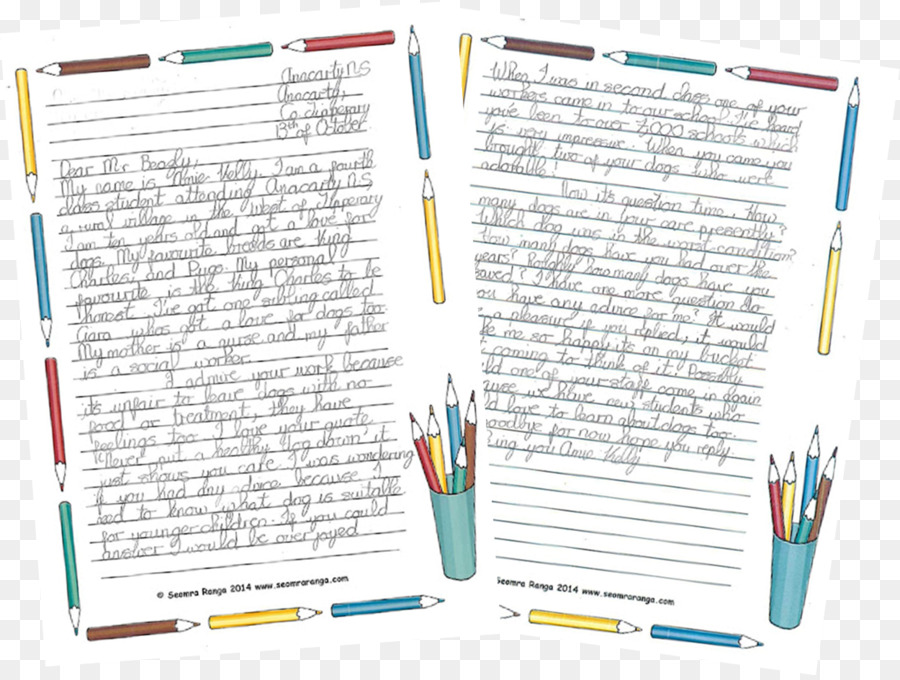 Anacarty N.S
Anacarty,
Co Tipperary
13th of October
Dear Mr. Beagly,
My name is Amie Kelly. I am a fourth
class student attending Anacarty N.S,
a rural village in the West of Tipperary
I am ten years old and got a love for
dogs. My favourite breeds are King
Charles, and Pugs. My personal
favourite is the King Charles to be
honest, I've got one sibling called
Ciara who's got a love for dogs too.
My mother is a nurse and my father
is a social worker.
I admire your work because
it's unfair to leave dogs with no
food or treatment, they have
feelings too. I love your quote
"Never put a healthy dog down" it
just shows you care. I was wondering
if you had any advice because I
need to know what dog is suitable
for younger children. If you could
answer I would be overjoyed.
© Seomra Ranga 2014 www.seomraranga.com
When I was in second class one of your
workers came in to our school. I've heard
you've been to over 2,000 schools which
is very impressive. When you came you
brought two of your dogs who were
adorable!
Now it's question time. How
many dogs are in your care presently?
Which dog was in the worst condition?
How many dogs have you had over the
years? Roughly how many dogs have you
saved? I have one more question do
you have any advice for me? It would
be a pleasure if you replied, it would
me so happy its on my bucket
coming to think of it. Possibly
one of your staff came in again
we have new students who
love to learn about dogs too.
Goodbye for now hope you reply.
you Amie Kelly
Seomra Ranga 2014 www.seomraranga.com